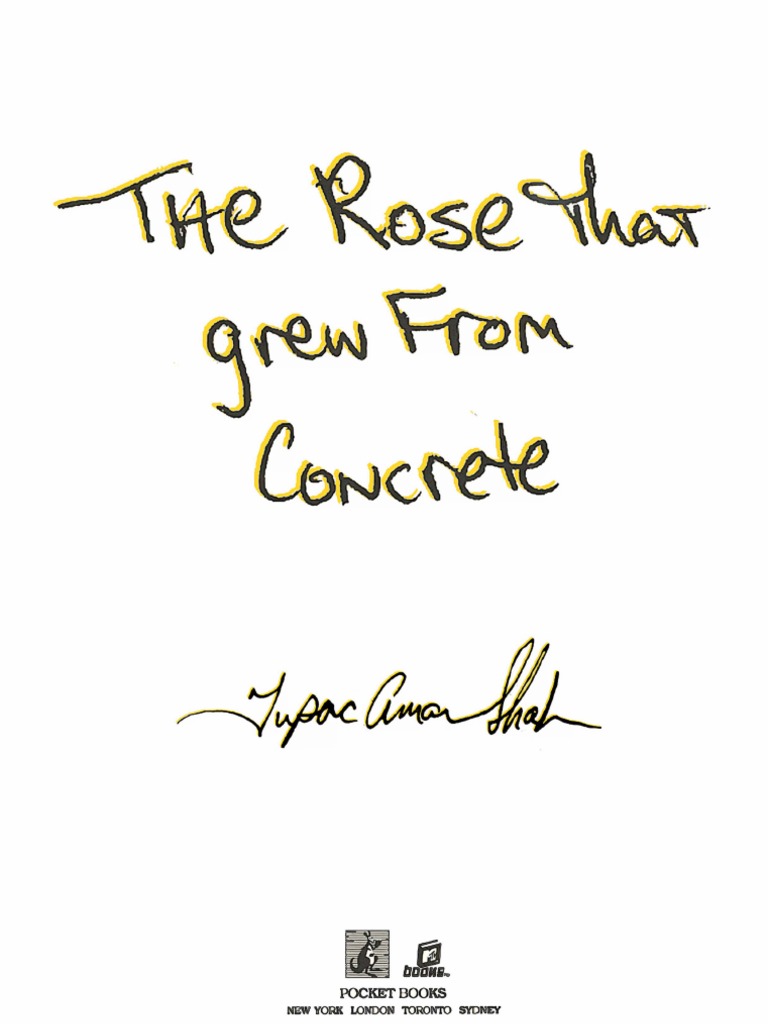 The Rose That
grew From
Concrete
Tupac Amar Shak
MTV
BOOKS™
POCKET BOOKS
NEW YORK LONDON TORONTO SYDNEY